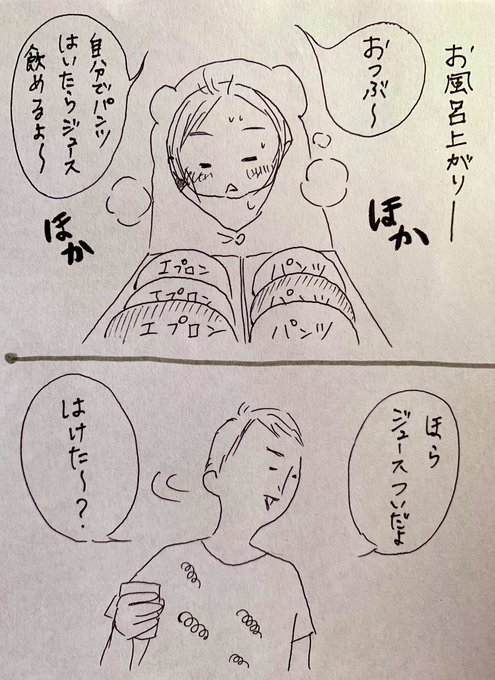 お風呂上がりー
おっぷ〜
自分でパンツ
はいたらジュース
飲めるよ〜
ほか
ほか
エプロン
エプロン
エプロン
パンツ
パンツ
パンツ
ほら
ジュースついだよ
はけた〜?